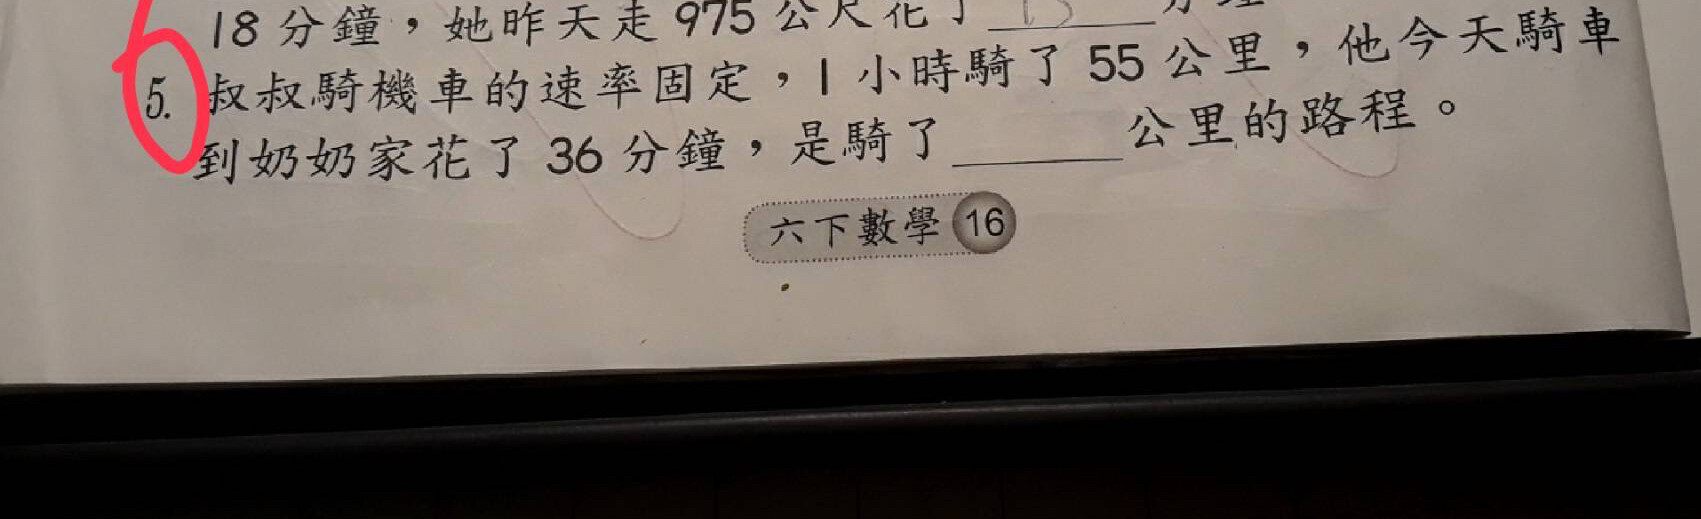 18 分鐘，她昨天走 975 公尺花了 13 分鐘
5. 叔叔騎機車的速率固定，1 小時騎了 55 公里，他今天騎車
到奶奶家花了 36 分鐘，是騎了______公里的路程。
六下數學 16